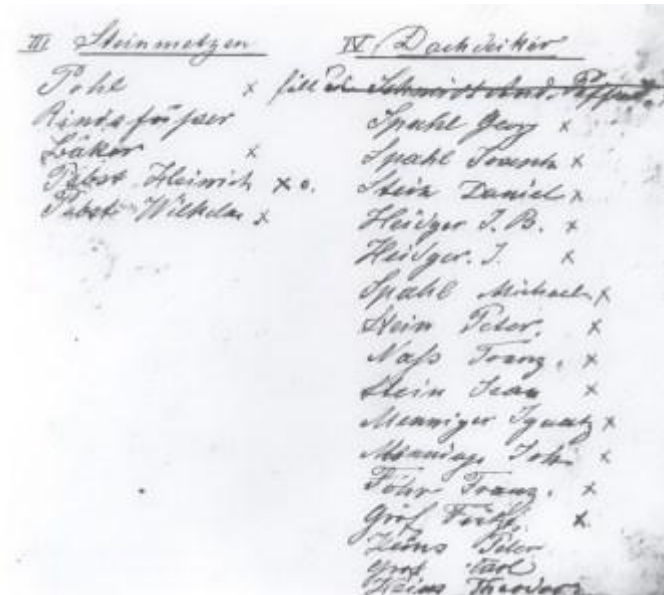 III Steinmetzen
Pohl x
Rindsfüßer
Bäker x
Pabst Heinrich x o.
Pabst Wilhelm x
IV Dachdeiker
Schmidt And.
Spahl Georg x
Spahl x
Stein Daniel x
Heidger J. B. x
Heidger. J. x
Spahl Michael x
Stein Peter. x
Naß Franz. x
Stein Jean x
Menniger Ignatz x
Joh. x
Föhr Franz. x
Gröf x
Peter
Carl
Heins Theodor